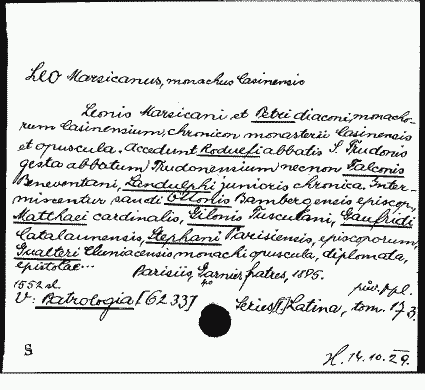 Leo Marsicanus, monachus Casinensis
Leonis Marsicani et Petri diaconi, monacho-
rum Casinensium, chronicon monasterii Casinensis
et opuscula. Accedunt Rodulfi abbatis S. Trudonis
gesta abbatum Trudonensium necnon Falconis
Beneventani, Landulphi junioris chronica. Inter-
miscentur sancti Ottonis Bambergensis episcop.,
Matthaei cardinalis, Gilonis Tusculani, Gaufridi
Catalaunensis, Stephani Parisiensis, episcoporum,
Gualteri Cluniacensis monachi opuscula, diplomata,
epistolae...
Parisiis, Garnier fratres, 1895.
1552 sl. po
V: Patrologia [6233] Series [II] Latina, tom. 173.
S
H. 14.10.29.